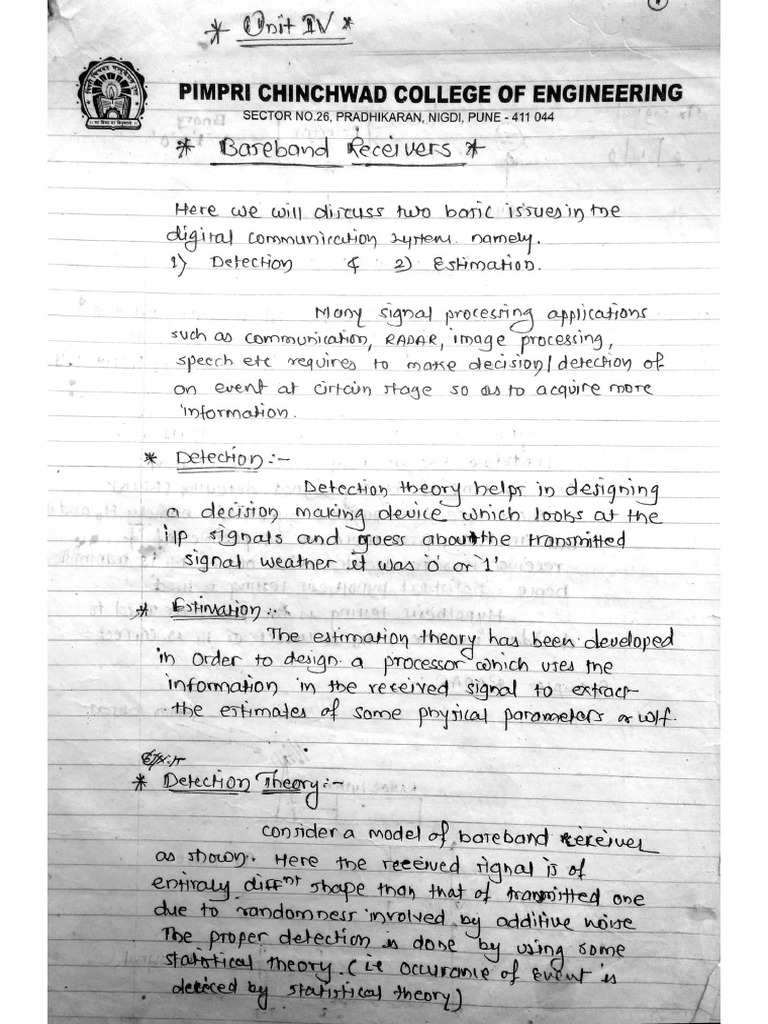 * Unit IV *
PIMPRI CHINCHWAD COLLEGE OF ENGINEERING
SECTOR NO.26, PRADHIKARAN, NIGDI, PUNE - 411 044
* Baseband Receivers *
Here we will discuss two basic issues in the
digital communication system. namely.
1) Detection & 2) Estimation.
Many signal processing applications
such as communication, RADAR, image processing,
speech etc requires to make decision/detection of
an event at cirtain stage so as to acquire more
information.
* Detection :-
Detection theory helps in designing
a decision making device which looks at the
i/p signals and guess about the transmitted
signal weather it was '0' or '1'
* Estimation :-
The estimation theory has been developed
in order to design a processor which uses the
information in the received signal to extract
the estimates of some physical parameters or w/f.
* Detection Theory :-
Consider a model of baseband receiver
as shown. Here the received signal is of
entiraly diffnt shape than that of transmitted one
due to randomness involved by additive noise
The proper detection is done by using some
statistical theory. (ie occurance of event is
deciced by statistical theory)